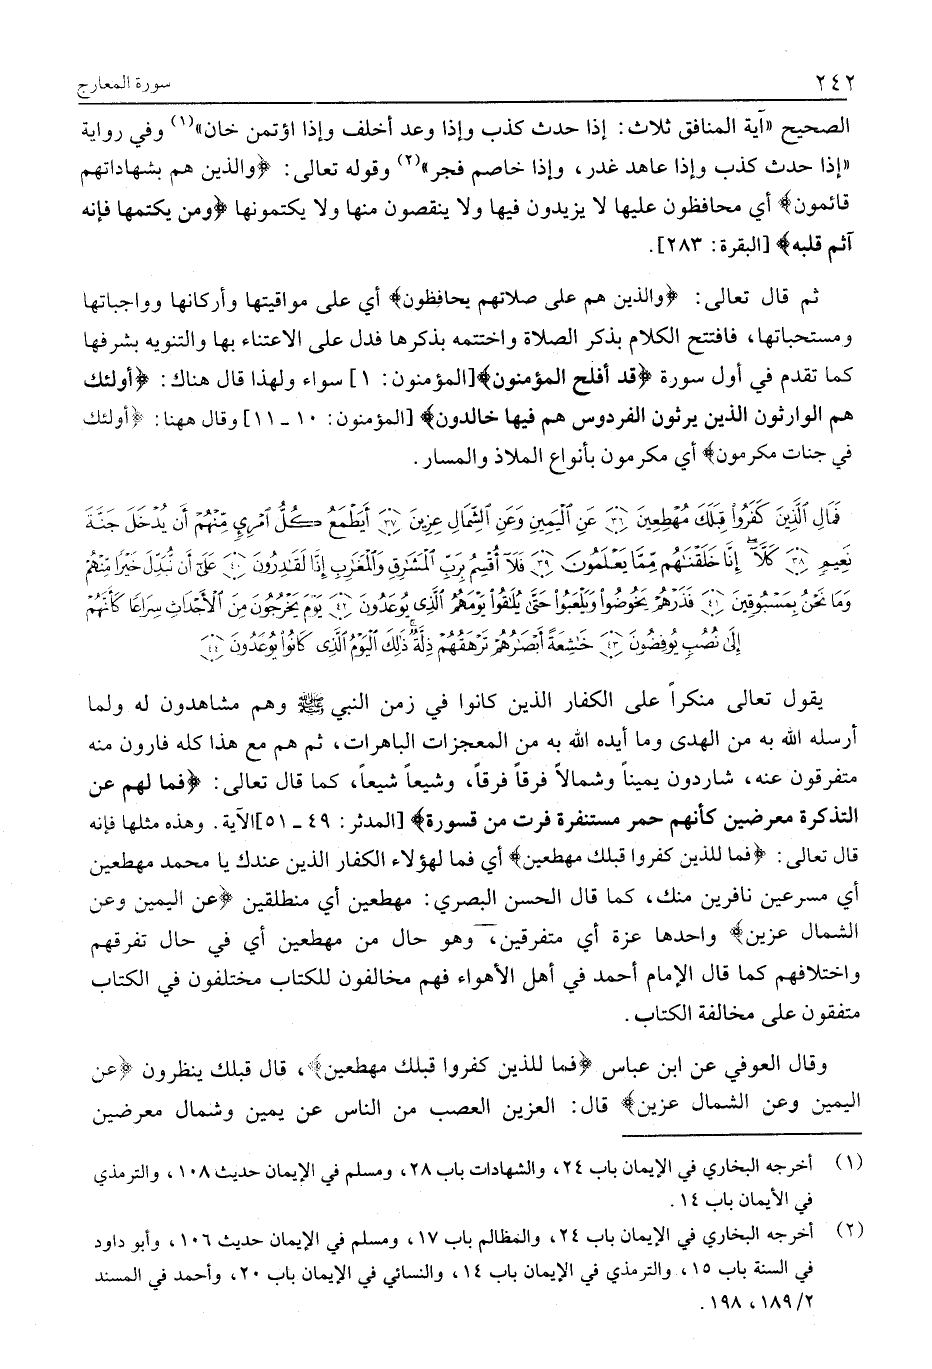 ٢٤٢ سورة المعارج
الصحيح «آية المنافق ثلاث: إذا حدث كذب وإذا وعد أخلف وإذا اؤتمن خان»(١) وفي رواية
«إذا حدث كذب وإذا عاهد غدر، وإذا خاصم فجر»(٢) وقوله تعالى: ﴿والذين هم بشهاداتهم
قائمون﴾ أي محافظون عليها لا يزيدون فيها ولا ينقصون منها ولا يكتمونها ﴿ومن يكتمها فإنه
آثم قلبه﴾ [البقرة: ٢٨٣].
ثم قال تعالى: ﴿والذين هم على صلاتهم يحافظون﴾ أي على مواقيتها وأركانها وواجباتها
ومستحباتها، فافتتح الكلام بذكر الصلاة واختتمه بذكرها فدل على الاعتناء بها والتنويه بشرفها
كما تقدم في أول سورة ﴿قد أفلح المؤمنون﴾[المؤمنون: ١] سواء ولهذا قال هناك: ﴿أولئك
هم الوارثون الذين يرثون الفردوس هم فيها خالدون﴾ [المؤمنون: ١٠ ـ ١١] وقال ههنا: ﴿أولئك
في جنات مكرمون﴾ أي مكرمون بأنواع الملاذ والمسار.
فَمَالِ ٱلَّذِينَ كَفَرُوا۟ قِبَلَكَ مُهْطِعِينَ ﴿٣٦﴾ عَنِ ٱلْيَمِينِ وَعَنِ ٱلشِّمَالِ عِزِينَ ﴿٣٧﴾ أَيَطْمَعُ كُلُّ ٱمْرِئٍ مِّنْهُمْ أَن يُدْخَلَ جَنَّةَ
نَعِيمٍ ﴿٣٨﴾ كَلَّآ إِنَّا خَلَقْنَٰهُم مِّمَّا يَعْلَمُونَ ﴿٣٩﴾ فَلَآ أُقْسِمُ بِرَبِّ ٱلْمَشَٰرِقِ وَٱلْمَغَٰرِبِ إِنَّا لَقَٰدِرُونَ ﴿٤٠﴾ عَلَىٰٓ أَن نُّبَدِّلَ خَيْرًا مِّنْهُمْ
وَمَا نَحْنُ بِمَسْبُوقِينَ ﴿٤١﴾ فَذَرْهُمْ يَخُوضُوا۟ وَيَلْعَبُوا۟ حَتَّىٰ يُلَٰقُوا۟ يَوْمَهُمُ ٱلَّذِى يُوعَدُونَ ﴿٤٢﴾ يَوْمَ يَخْرُجُونَ مِنَ ٱلْأَجْدَاثِ سِرَاعًا كَأَنَّهُمْ
إِلَىٰ نُصُبٍ يُوفِضُونَ ﴿٤٣﴾ خَٰشِعَةً أَبْصَٰرُهُمْ تَرْهَقُهُمْ ذِلَّةٌ ذَٰلِكَ ٱلْيَوْمُ ٱلَّذِى كَانُوا۟ يُوعَدُونَ ﴿٤٤﴾
يقول تعالى منكراً على الكفار الذين كانوا في زمن النبي ﷺ وهم مشاهدون له ولما
أرسله الله به من الهدى وما أيده الله به من المعجزات الباهرات، ثم هم مع هذا كله فارون منه
متفرقون عنه، شاردون يميناً وشمالاً فرقاً فرقاً، وشيعاً شيعاً، كما قال تعالى: ﴿فما لهم عن
التذكرة معرضين كأنهم حمر مستنفرة فرت من قسورة﴾ [المدثر: ٤٩ ـ ٥١]الآية. وهذه مثلها فإنه
قال تعالى: ﴿فما للذين كفروا قبلك مهطعين﴾ أي فما لهؤلاء الكفار الذين عندك يا محمد مهطعين
أي مسرعين نافرين منك، كما قال الحسن البصري: مهطعين أي منطلقين ﴿عن اليمين وعن
الشمال عزين﴾ واحدها عزة أي متفرقين، وهو حال من مهطعين أي في حال تفرقهم
واختلافهم كما قال الإمام أحمد في أهل الأهواء فهم مخالفون للكتاب مختلفون في الكتاب
متفقون على مخالفة الكتاب.
وقال العوفي عن ابن عباس ﴿فما للذين كفروا قبلك مهطعين﴾، قال قبلك ينظرون ﴿عن
اليمين وعن الشمال عزين﴾ قال: العزين العصب من الناس عن يمين وشمال معرضين
(١) أخرجه البخاري في الإيمان باب ٢٤، والشهادات باب ٢٨، ومسلم في الإيمان حديث ١٠٨، والترمذي
في الأيمان باب ١٤.
(٢) أخرجه البخاري في الإيمان باب ٢٤، والمظالم باب ١٧، ومسلم في الإيمان حديث ١٠٦، وأبو داود
في السنة باب ١٥، والترمذي في الإيمان باب ١٤، والنسائي في الإيمان باب ٢٠، وأحمد في المسند
٢/ ١٨٩، ١٩٨.